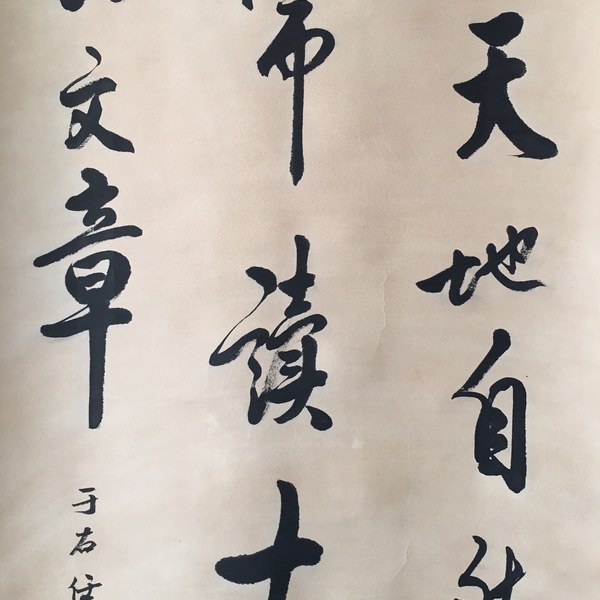 天地自
讀
文章
于右任